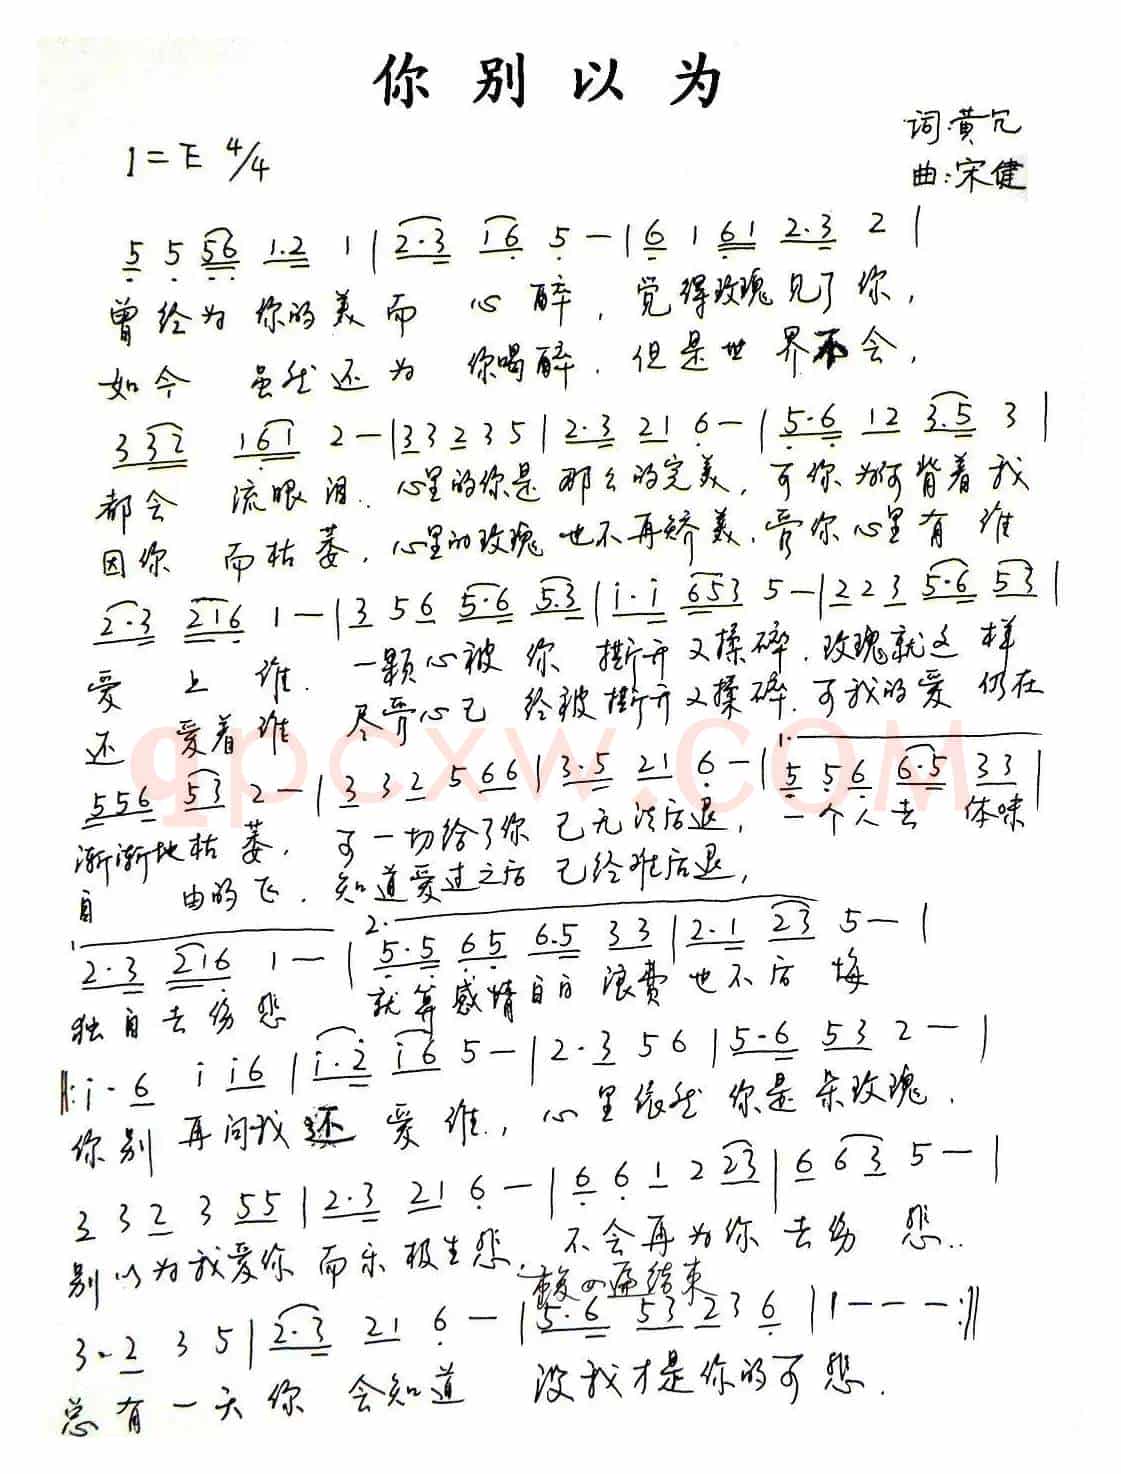 你别以为
词:黄冗
1=E 4/4
曲:宋健
5 5 56 1.2 1 | 2.3 16 5 - | 6 1 61 2.3 2 |
曾经为你的美而 心 醉，觉得玫瑰见了你，
如今 虽然还为 你喝醉，但是世界不会，
3 32 161 2 - | 3 3 2 3 5 | 2.3 21 6 - | 5.6 12 3.5 3 |
都会 流眼泪．心里的你是那么的完美，可你为何背着我
因你 而枯萎，心里的玫瑰也不再娇美，管你心里有 谁
2.3 216 1 - | 3 5 6 5.6 5.3 | i.i 653 5 - | 2 2 3 5.6 53 |
爱 上 谁．一颗心被 你 撕开又揉碎．玫瑰就这 样
还 爱着谁 尽管心已 经被撕开又揉碎．可我的爱 仍在
qpcxw.com
1.
556 53 2 - | 3 32 566 | 3.5 21 6 - | 5 56 6.5 33 |
渐渐地枯萎，可一切给了你 已无法后退，一个人去 体味
自 由的飞．知道爱过之后 已经难后退，
1 2.
2.3 216 1 - | 5.5 65 6.5 33 | 2.1 23 5 - |
独自去伤悲 就算感情自白 浪费 也不后 悔
‖: i. 6 i i6 | i.2 i6 5 - | 2.3 5 6 | 5.6 53 2 - |
你别 再问我还 爱 谁，心里依然 你是朵玫瑰．
3 3 2 3 55 | 2.3 21 6 - | 6 6 1 2 23 | 6 63 5 - |
别以为我爱你 而乐极生悲，不会再为你 去伤 悲..
结束
3. 2 3 5 | 2.3 21 6 - | 5.6 53 23 6 | 1 - - - :‖
总有一天你 会知道 没我才是你的可悲．